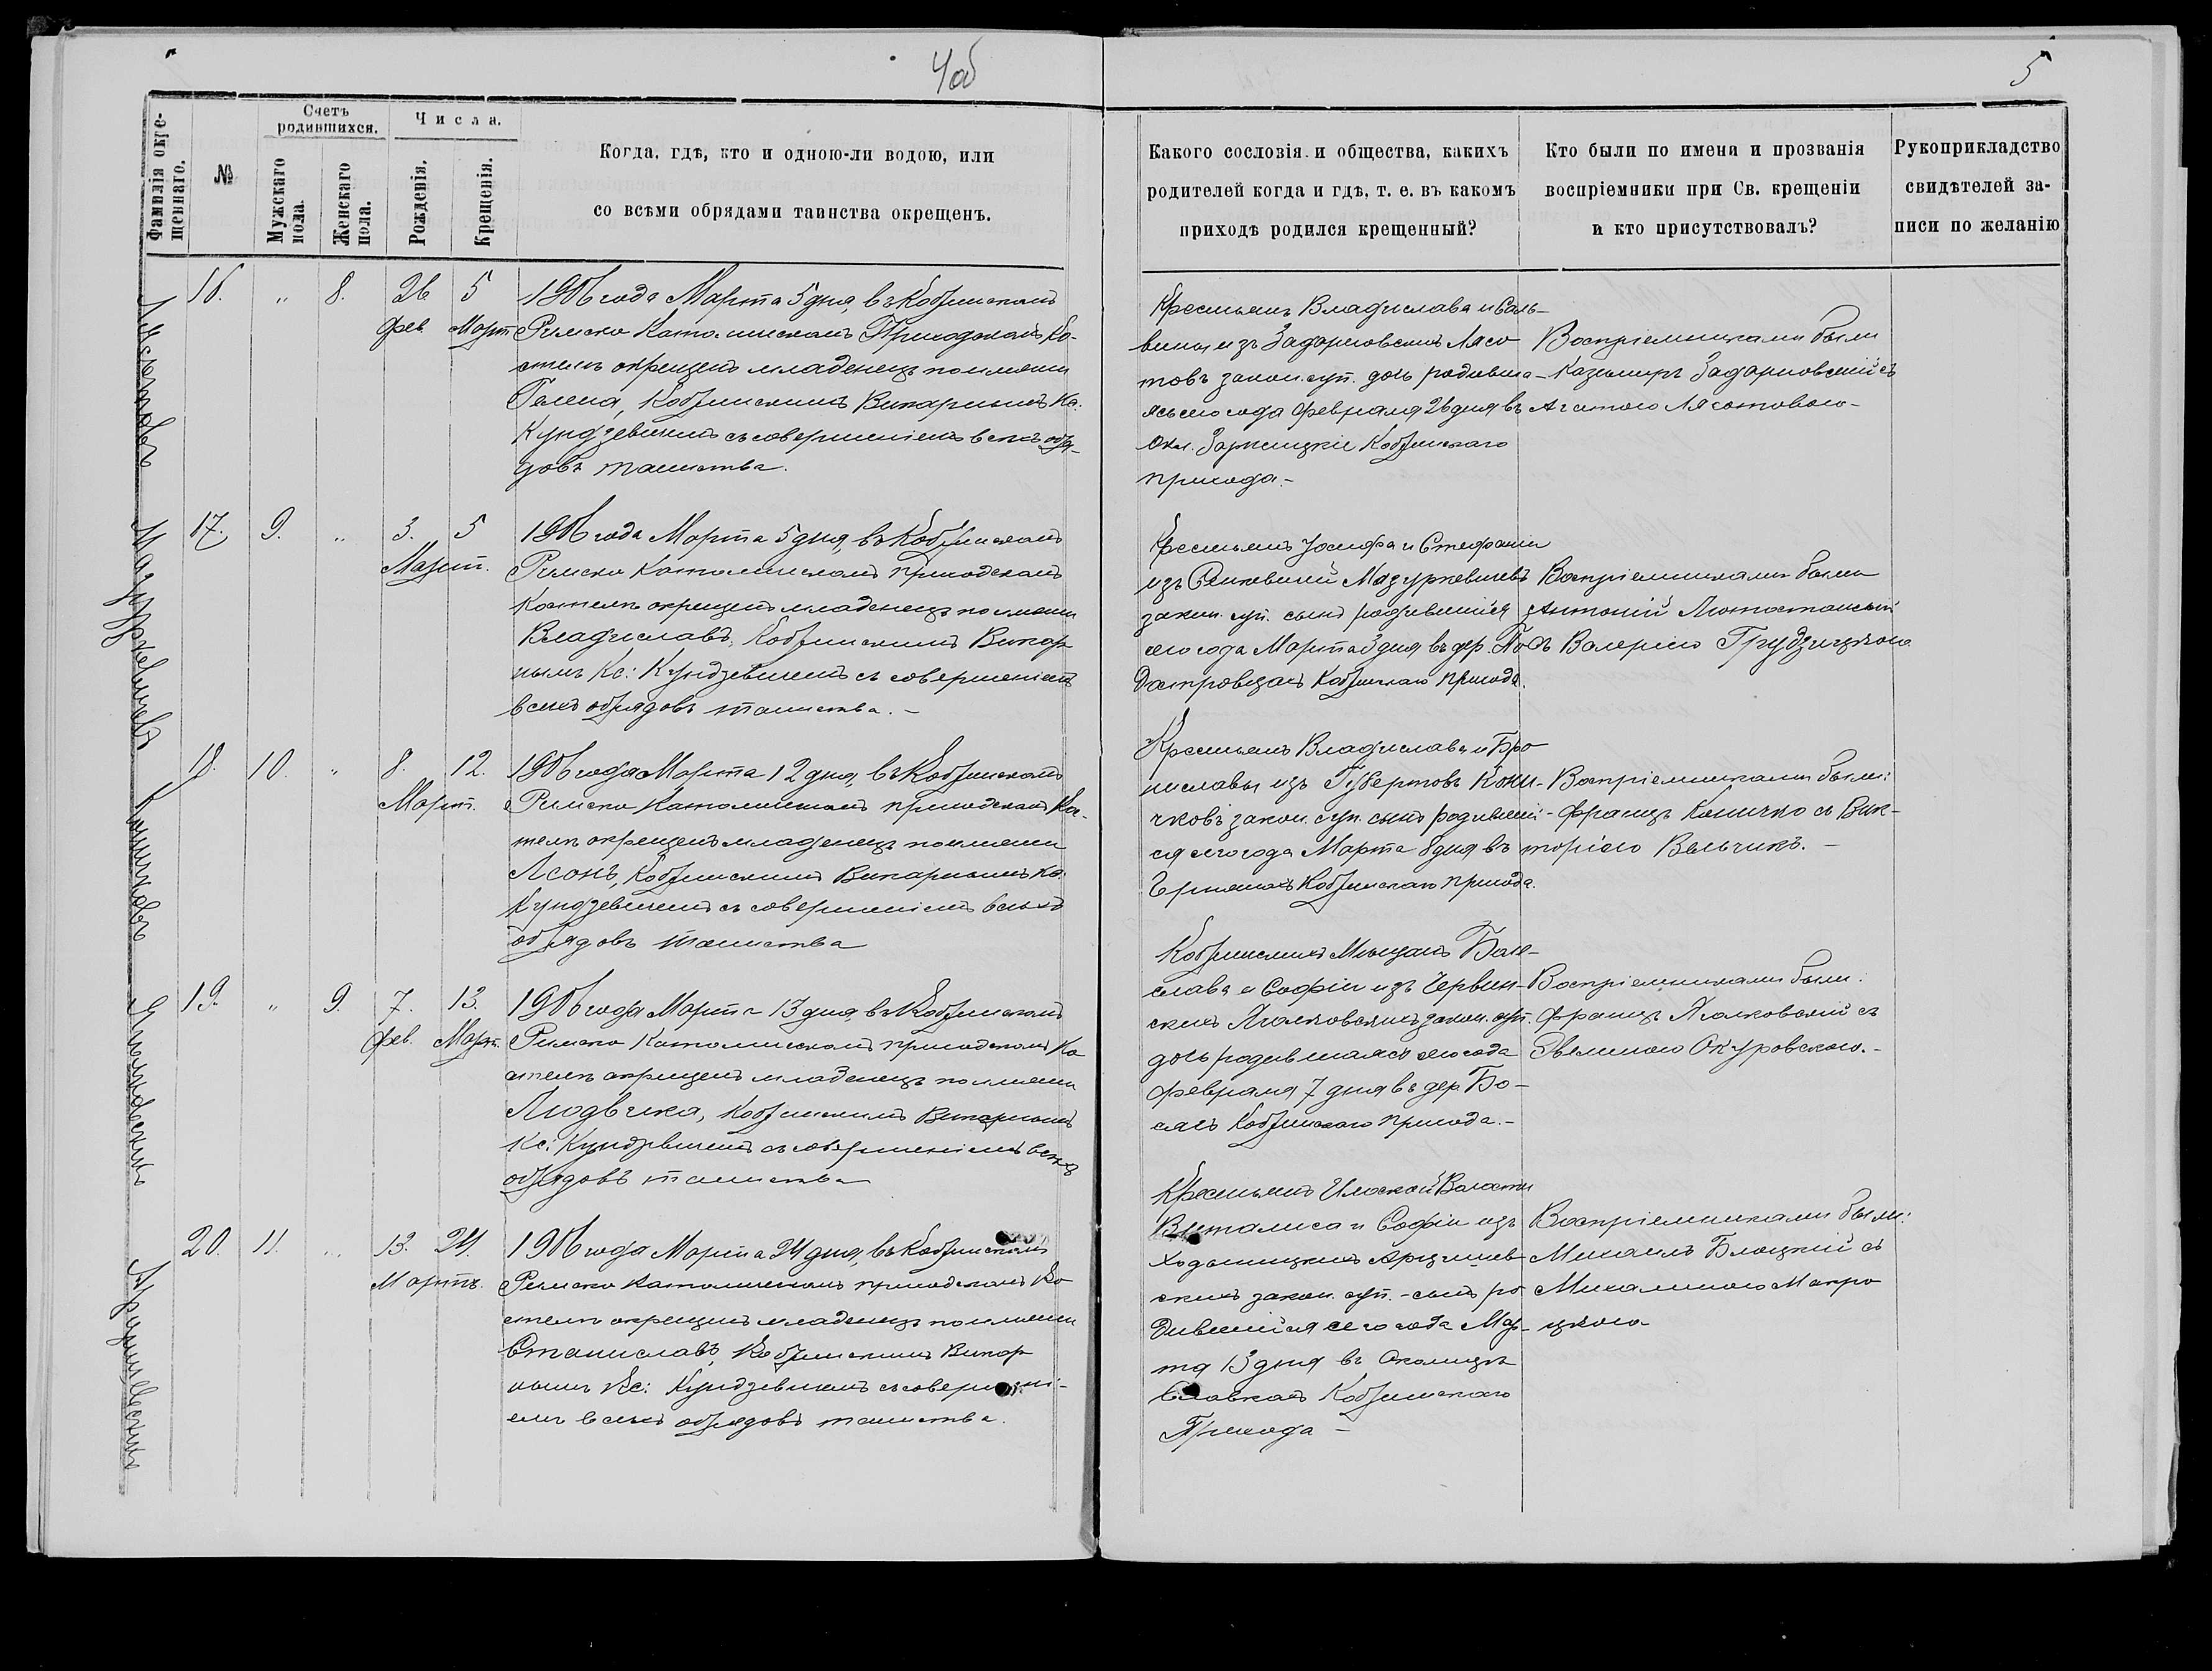 4об
5
Фамилія окре-
щеннаго.
№
Счетъ
родившихся.
Мужскаго
пола.
Женскаго
пола.
Числа.
Рожденія.
Крещенія.
Когда, гдѣ, кто и одною-ли водою, или
со всѣми обрядами таинства окрещенъ.
Какого сословія и общества, какихъ
родителей когда и гдѣ, т. е. въ какомъ
приходѣ родился крещенный?
Кто были по имени и прозванія
воспріемники при Св. крещеніи
и кто присутствовалъ?
Рукоприкладство
свидѣтелей за-
писи по желанію
Лясотовъ
16. " 8. 26 5
Фев. Март.
1906 года Марта 5 дня, въ Кобринскомъ
Римско Католическомъ Приходскомъ Ко-
стелѣ окрещенъ младенецъ по имени
Гелена, Кобринскимъ Викарнымъ Кс.
Кундзевичемъ съ совершеніемъ всѣхъ обря-
довъ таинства.
Крестьянъ Владислава и Саль-
вины изъ Задарновскихъ Лясо
товъ закон. суп. дочь родивша-
яся сего года Февраля 26 дня въ
Окл. Кобринскаго
прихода.-
Воспріемниками были
Казимиръ Задарновскій съ
Агатою Лясотовою-
Мазуркевичъ
17. 9. " 3. 5
Март.
1906 года Марта 5 дня, въ Кобринскомъ
Римско Католическомъ приходскомъ
Костелѣ окрещенъ младенецъ по имени
Владиславъ, Кобринскимъ Викар
нымъ Кс: Кундзевичемъ съ совершеніемъ
всѣхъ обрядовъ таинства.-
Крестьянъ Іосифа и Стефаніи
изъ Мазуркевичевъ
закон. суп. сынъ родившійся
сего года Марта 3 дня въ дер. По
Кобринскаго прихода.
Воспріемниками были
Антоній Лютостанскій
съ Валеріею Грудзицкою
Коничковъ
18. 10. " 8. 12.
Март.
1906 года Марта 12 дня, въ Кобринскомъ
Римско Католическомъ приходскомъ Ко-
стелѣ окрещенъ младенецъ по имени
Леонъ, Кобринскимъ Викарнымъ Кс.
Кундзевичемъ съ совершеніемъ всѣхъ
обрядовъ таинства
Крестьянъ Владислава и Бро
ниславы изъ Губертовъ Кони-
чковъ закон. суп. сынъ родившій-
ся сего года Марта 8 дня въ
Кобринскаго прихода.
Воспріемниками были:
Францъ Коничко съ Вик-
торіею Вельчикъ.-
Ялковскихъ
19. " 9. 7. 13.
Фев. Март.
1906 года Марта 13 дня, въ Кобринскомъ
Римско Католическомъ приходскомъ Ко
стелѣ окрещенъ младенецъ по имени
Людвика, Кобринскимъ Викарнымъ
Кс: Кундзевичемъ съ совершеніемъ всѣхъ
обрядовъ таинства
Кобринскихъ Мѣщанъ Боле-
слава и Софіи изъ Червин-
скихъ Ялковскихъ закон. суп.
дочь родившаяся сего года
Февраля 7 дня въ дер. Бо-
Кобринскаго прихода.-
Воспріемниками были:
Францъ Ялковскій съ
Эвелиною Окуровскою.-
Арцишевскихъ
20. 11. " 13. 24.
Мартъ.
1906 года Марта 24 дня, въ Кобринскомъ
Римско Католическомъ приходскомъ Ко
стелѣ окрещенъ младенецъ по имени
Станиславъ, Кобринскимъ Викар
нымъ Кс: Кундзевичемъ съ совершені-
емъ всѣхъ обрядовъ таинства.
Крестьянъ Илоской Волости
Виталиса и Софіи изъ
Ходыницкихъ Арцишев
скихъ закон. суп.- сынъ ро
дившійся сего года Мар-
та 13 дня въ Околицѣ
Кобринскаго
Прихода-
Воспріемниками были:
Михаилъ съ
Михалиною Мокро
цкою